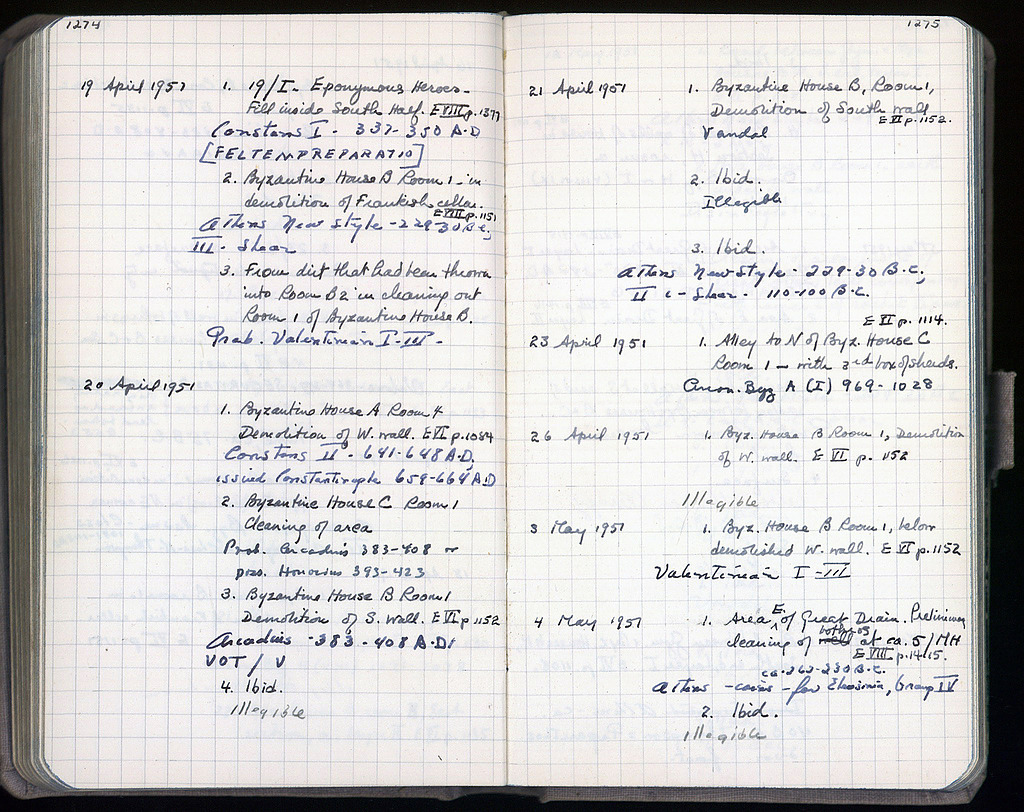 1274
19 April 1951 1. 19/I- Eponymous Heroes-
Fill inside South Half. E VIII p. 1377
Constans I - 337-350 A.D
[FEL TEMP REPARATIO]
2. Byzantine House B Room 1 - in
demolition of Frankish cellar.
E VIII p. 1151
Athens New Style - 229-30 B.C;
III - Shear
3. From dirt that had been thrown
into Room B2 in cleaning out
Room 1 of Byzantine House B.
Prob. Valentinian I-III -
20 April 1951
1. Byzantine House A Room 4
Demolition of W. wall. E VI p. 1084
Constans II - 641-648 A.D;
issued Constantinople 659-664 A.D
2. Byzantine House C Room 1
Cleaning of area
Prob. Arcadius 383-408 or
poss. Honorius 393-423
3. Byzantine House B Room 1
Demolition of S. wall. E VI p. 1152
Arcadius - 383-408 A.D;
VOT / V
4. Ibid.
Illegible
1275
21 April 1951 1. Byzantine House B, Room 1,
Demolition of South wall
E VI p. 1152.
Vandal
2. Ibid.
Illegible
3. Ibid
Athens New Style - 229-30 B.C;
II - Shear - 110-100 B.C.
E VI p. 1114.
23 April 1951 1. Alley to N of Byz. House C
Room 1 - with 3rd box of sherds.
Anon. Byz A (I) 969-1028
26 April 1951 1. Byz. House B Room 1, Demolition
of W. wall. E VI p. 1152
Illegible
3 May 1951 1. Byz. House B Room 1, below
demolished W. wall. E VI p. 1152
Valentinian I-III
4 May 1951 1. Area E. of Great Drain. Preliminary
cleaning of bothros at ca. 5/MH
E VIII p. 1415.
ca. 262-230 B.C.
Athens - for Eleusinia, Group IV
2. Ibid.
Illegible